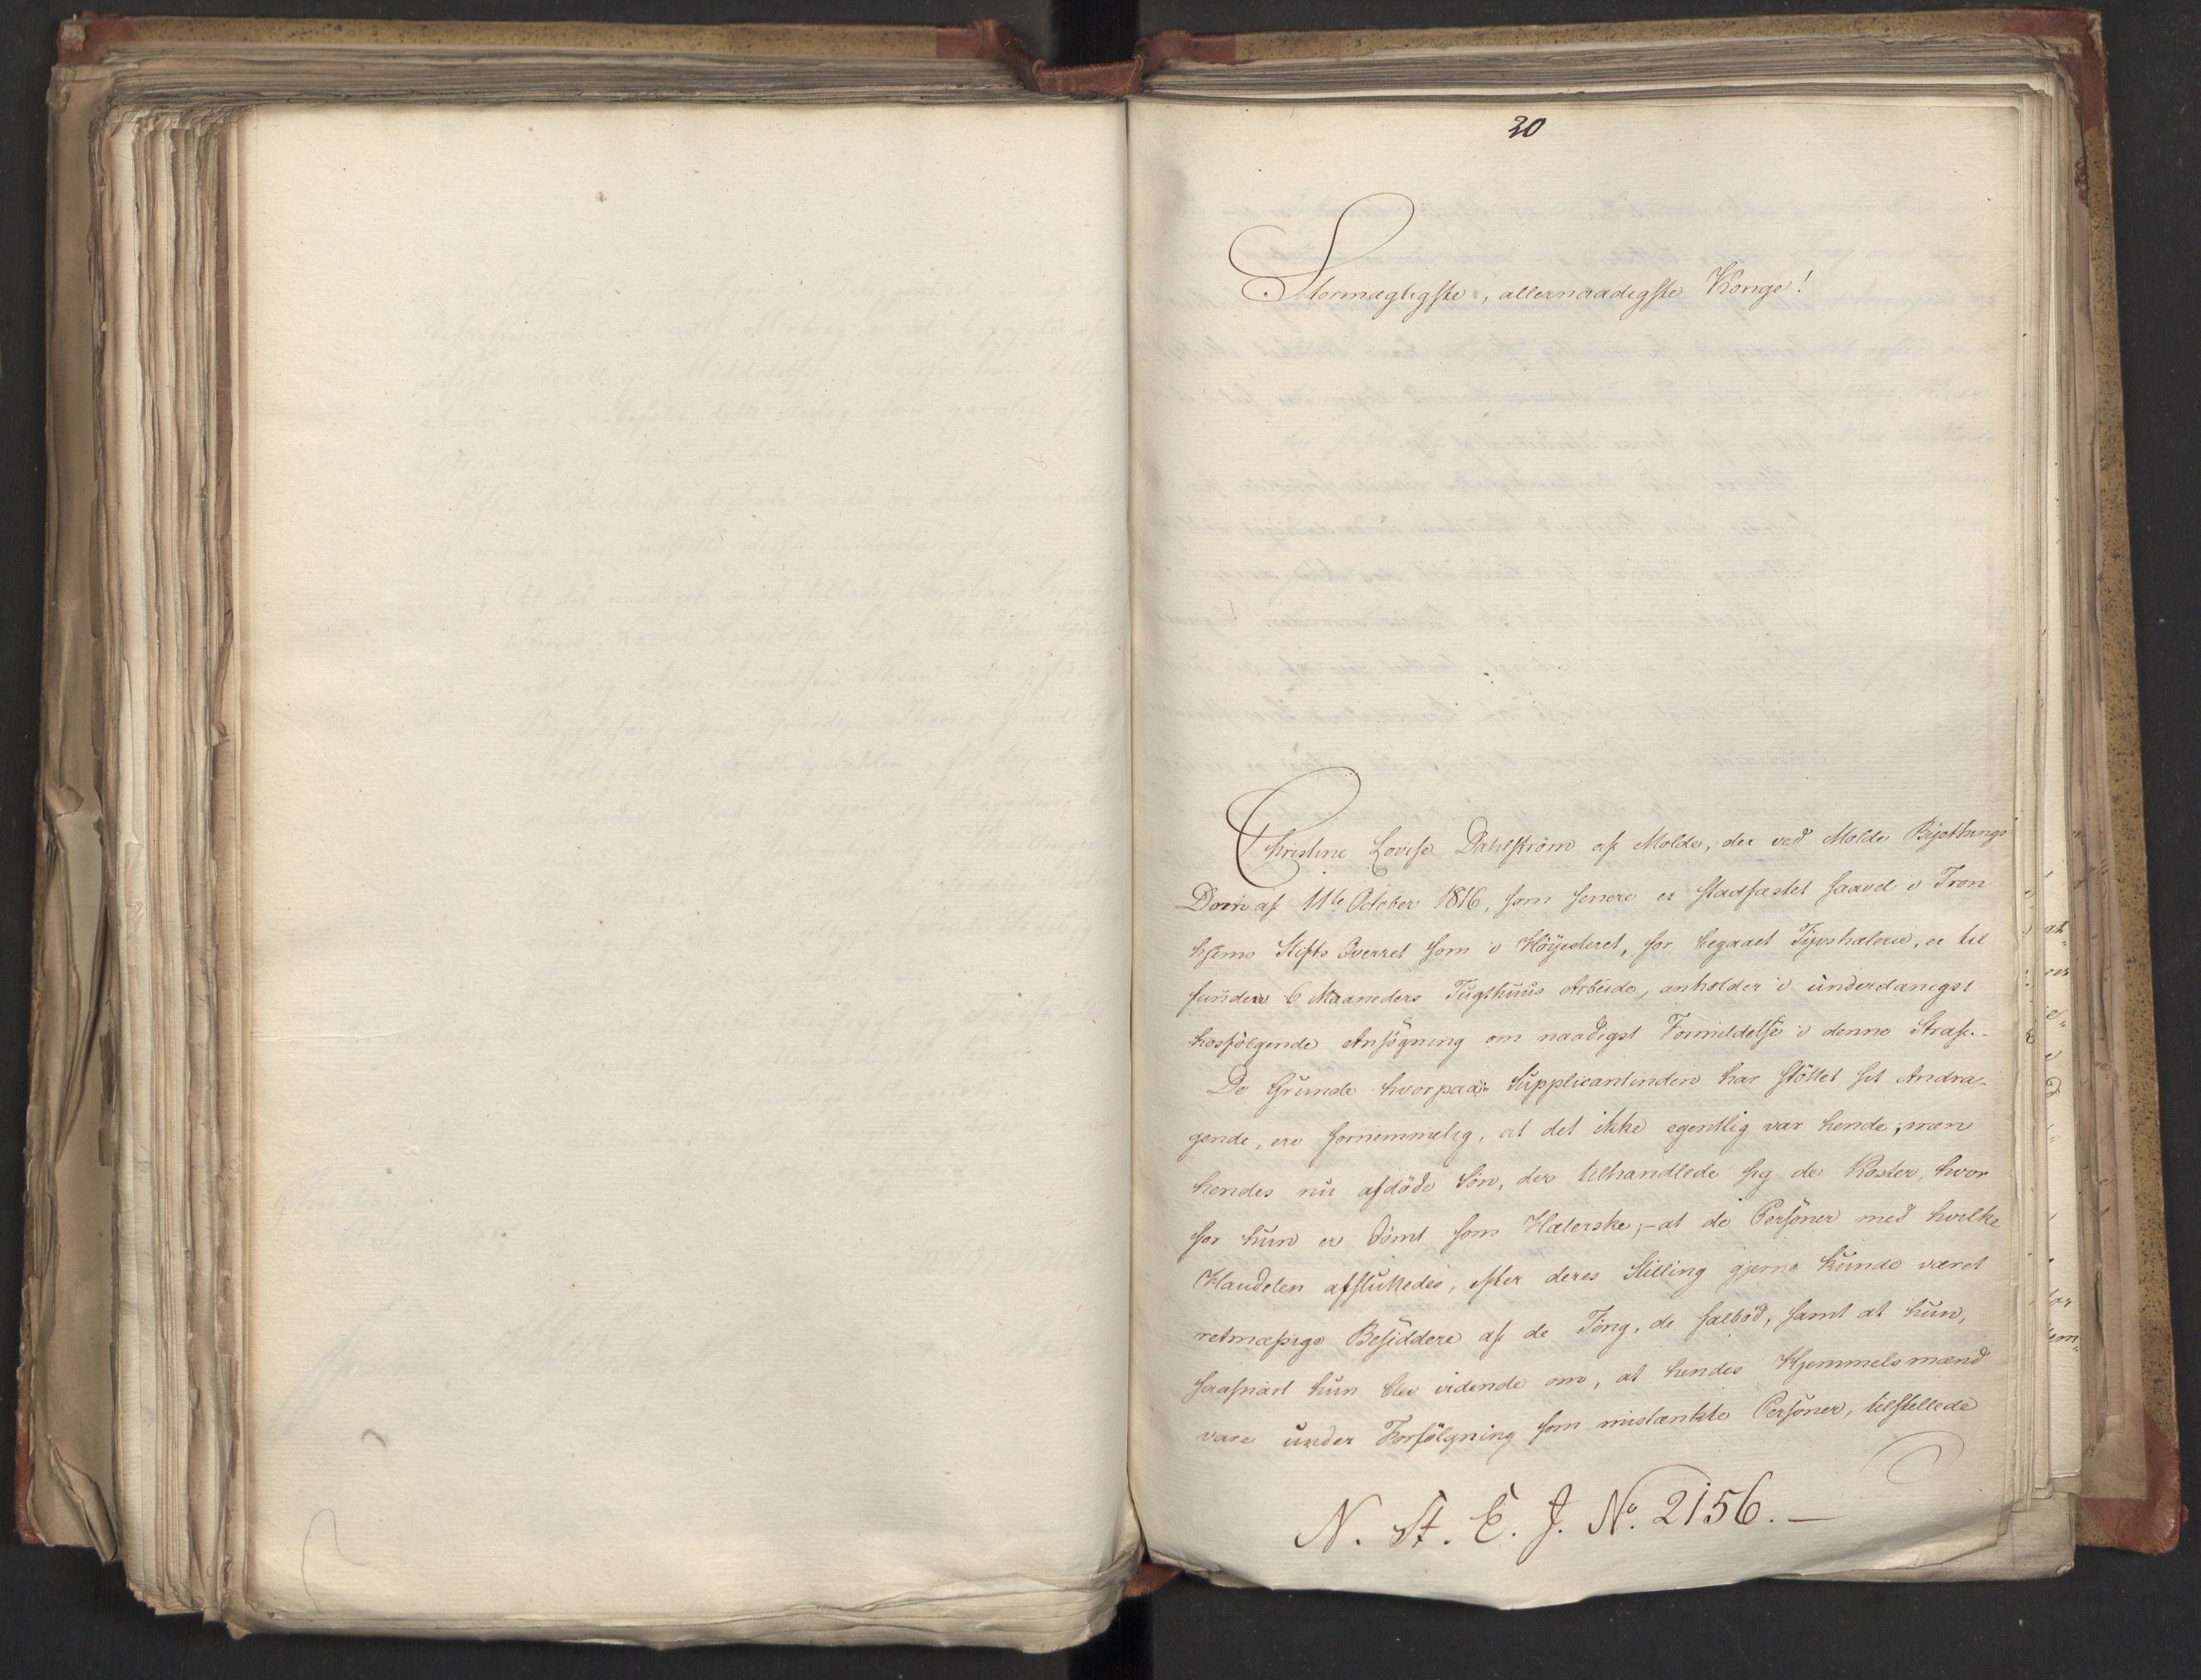 30
Stormægtigste, allernaadigste Konge!
Christine Lovise Dahlström af Molde, der ved Molde Bijethings
Dom af 11te October 1816, som senere er stadfæstet saavel i Tron
hjems Stifts Overret som i Höijesteret, for begaaet Tijvshæleri, er til
funden 6 Maaneders Tugthuus Arbeide, anholder i underdanigst
hosfölgende Ansögning om naadigst Formildelse i denne Straf.-
De Grunde hvorpaa Supplicantinden har stöttet sit Andra-
gende, ere fornemmelig, at det ikke egentlig var hende; men
hendes nu afdöde Sön, der tilhandlede sig de Koster, hvor
for hun er dömt som Hælerske;- at de Personer med hvilke
Handelen afsluttedes, efter deres Stilling gjerne kunde været
retmæssige Besiddere af de Ting, de falböd, samt at hun,
saasnart hun blev vidende om, at hendes Hjemmelsmænd
vare under Forfölgning som mistænkte Personer, tilstillede
N. St. E. J. No. 2156.-